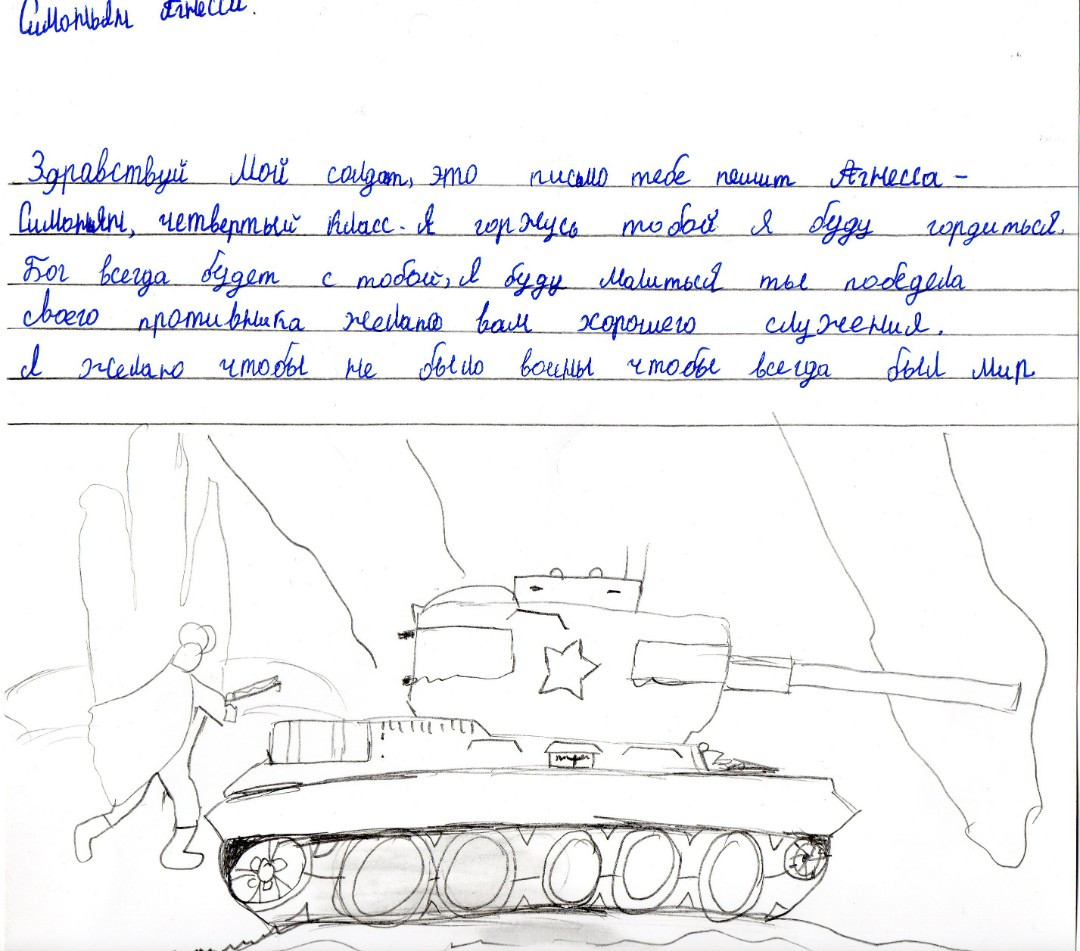 Симоньян Агнесса.
Здравствуй Мой солдат, это письмо тебе пешит Агнесса-
Симоньян, четвертый класс. Я горжусь тобой Я буду гордиться.
Бог всегда будет с тобой, Я буду малиться ты победела
своего противника желаю вам хорошего служения.
Я желаю чтобы не было воены чтобы всегда был мир